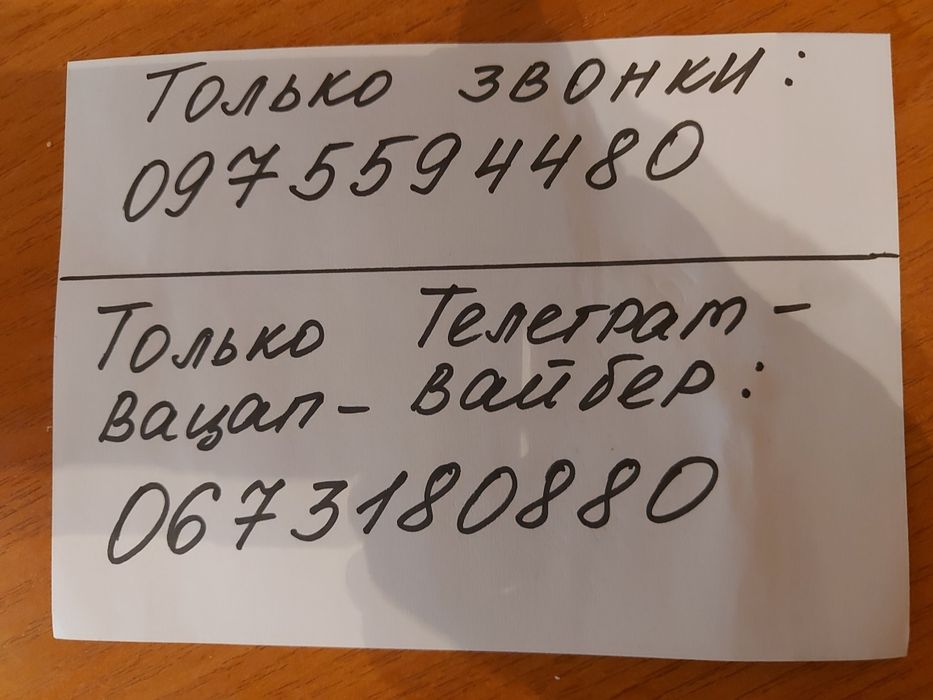 Только звонки:
0975594480
Только Телеграм-
Вацап- Вайбер:
0673180880